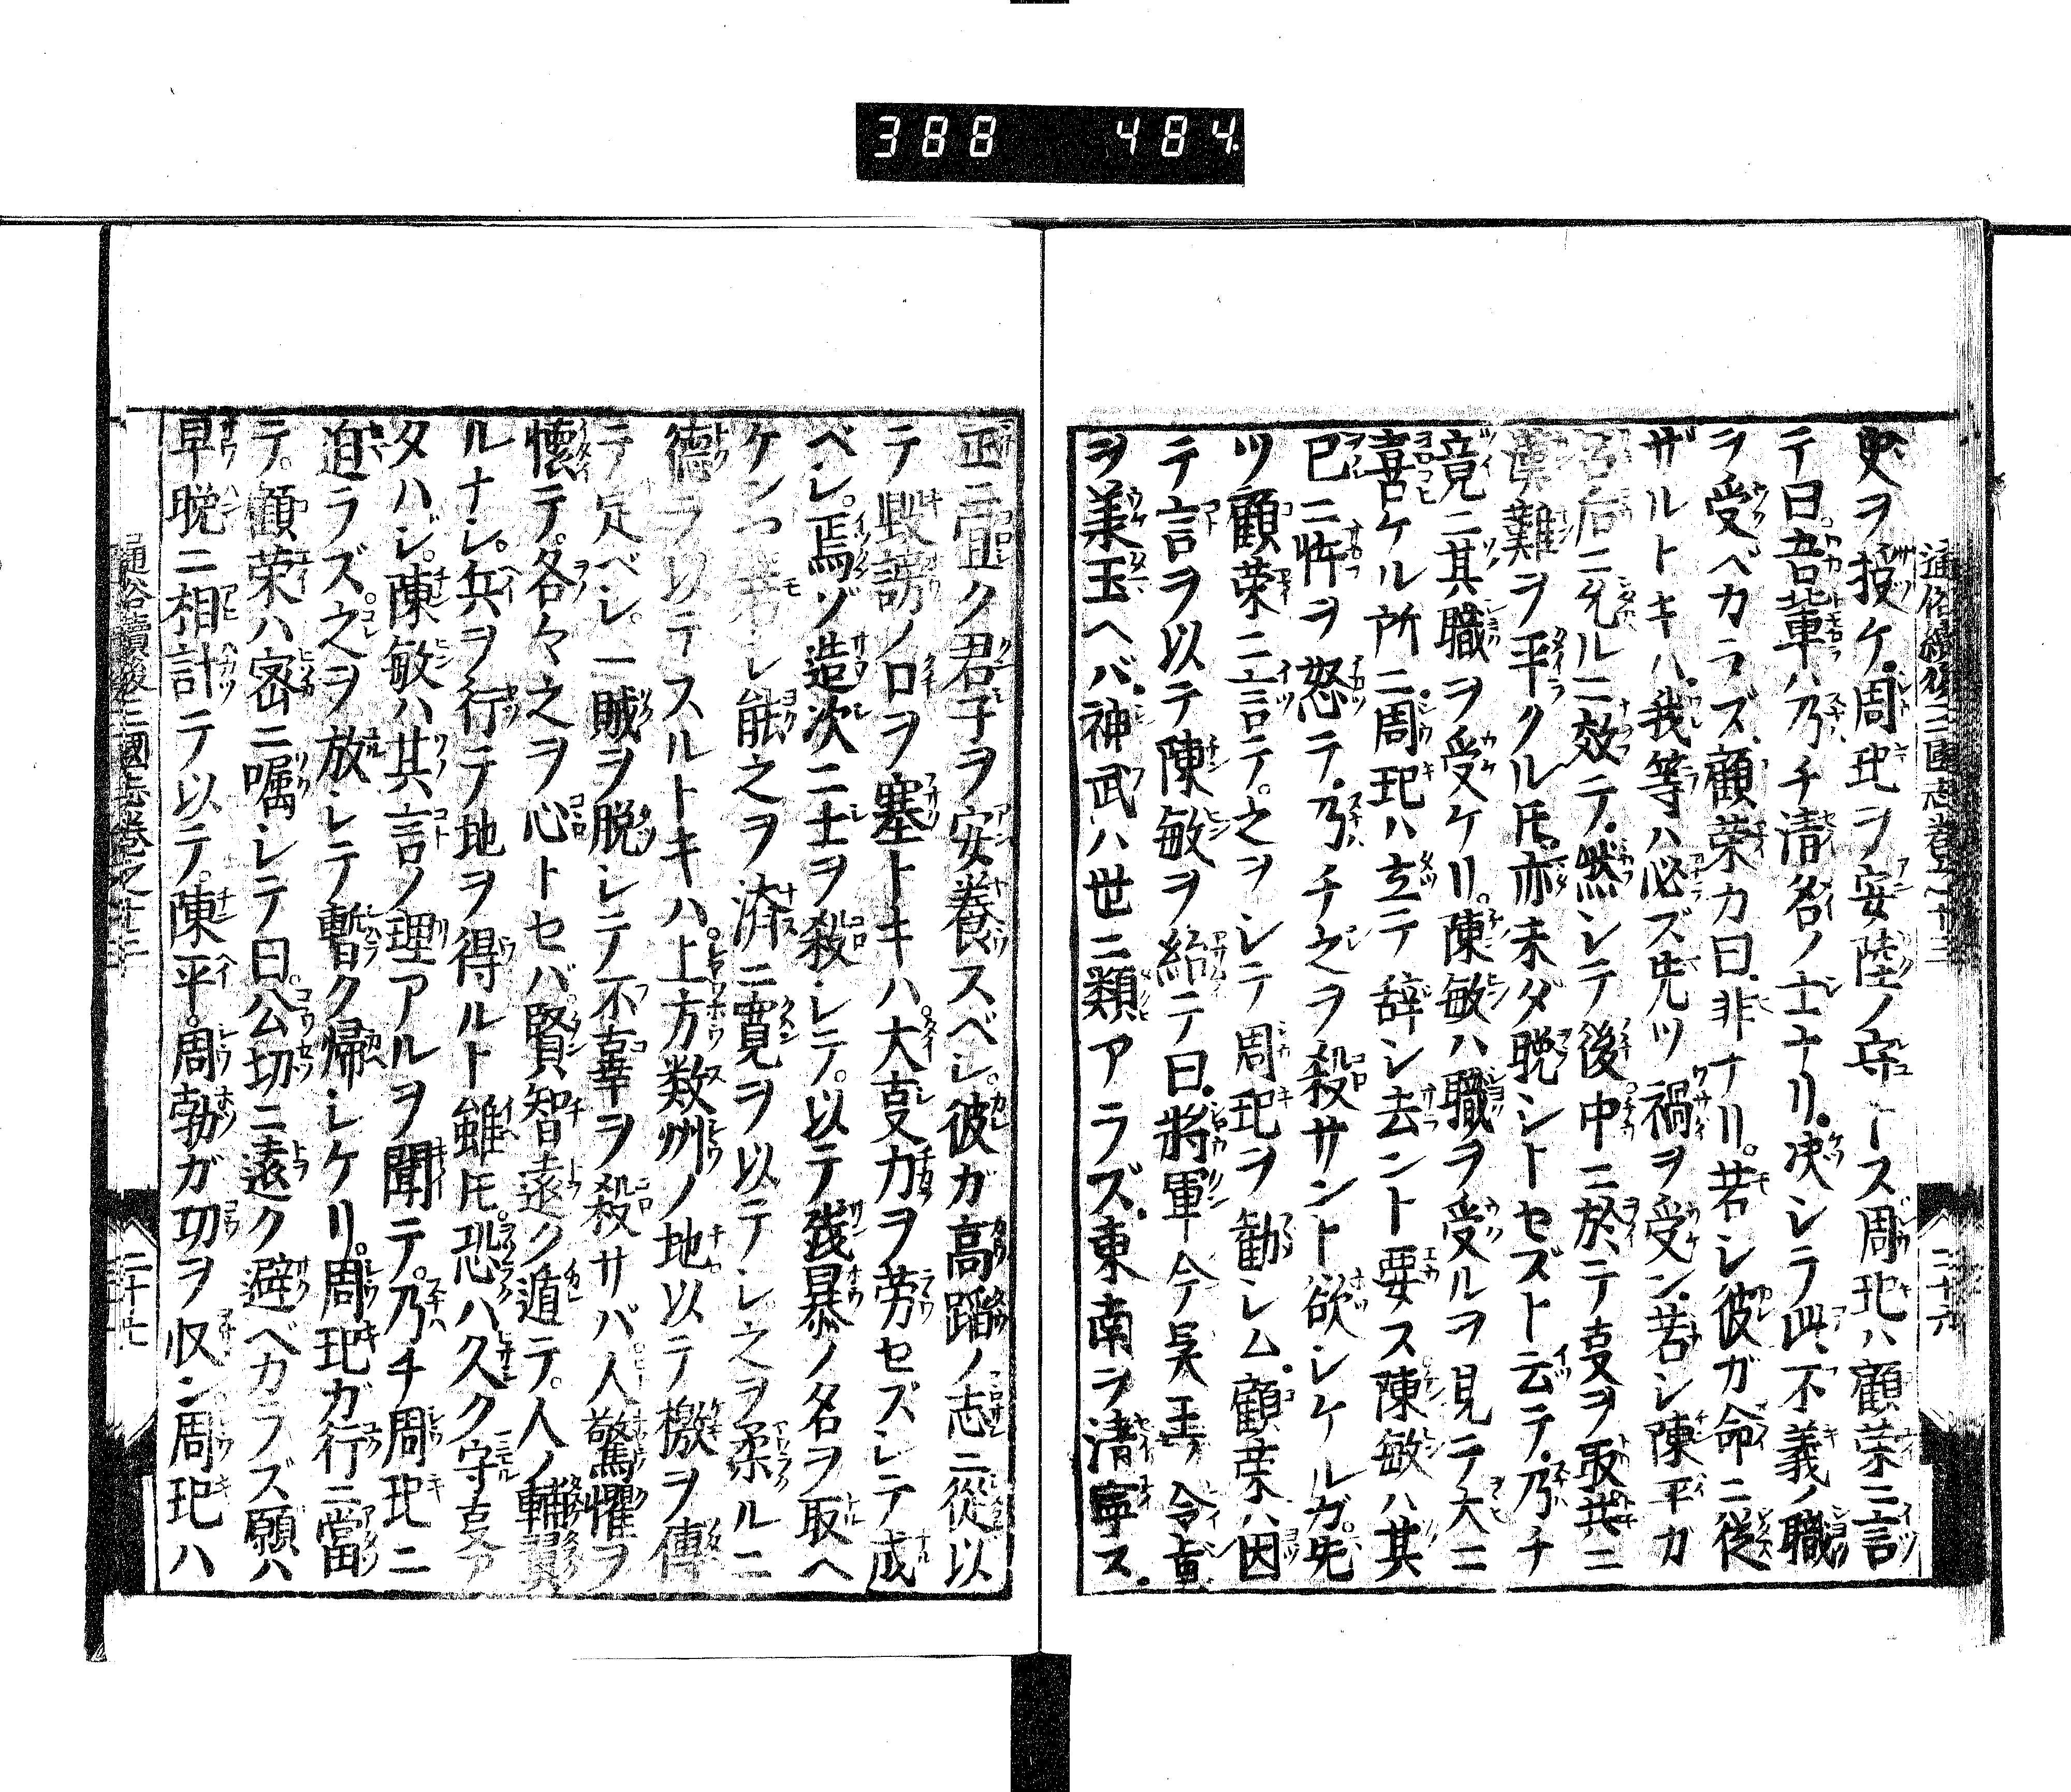 388 484
通俗續後三國志卷之十三
二十六
吏ヲ授ケ周玘ヲ安陸ノ守トス周玘ハ顧荣ニ言
テ曰吾輩ハ乃チ清名ノ士ナリ決シテ此不義ノ職
ヲ受ベカラズ顧荣カ曰非ナリ若シ彼ガ命ニ從
ザルトキハ我等ハ必ズ先ツ禍ヲ受ン若シ陳平ガ
呂后ニ允ルニ效テ然シテ後中ニ於テ叓ヲ取共ニ
漢難ヲ平クル𪜈亦未ダ晩シトセズト云テ乃チ
竟ニ其職ヲ受ケリ陳敏ハ職ヲ受ルヲ見テ大ニ
喜ケル所ニ周玘ハ立テ辞シ去ント要ス陳敏ハ其
已ニ忤ヲ怒テ乃チ之ヲ殺サント欲シケルガ先
ツ顧荣ニ言テ之ヲシテ周玘ヲ勧シム顧荣ハ因
テ言ヲ以テ陳敏ヲ紿テ曰將軍今吳王ノ令旨
ヲ美玉ヘバ神武ハ世ニ類アラズ東南ヲ清寧ス
正ニ宜ク君子ヲ安養スベシ彼ガ高蹈ノ志ニ從以
テ毀謗ノ口ヲ塞トキハ大叓力ヲ労セズシテ成
ベシ焉ゾ造次ニ士ヲ殺シテ以テ残暴ノ名ヲ取ヘ
ケンヤ若シ能之ヲ済ニ寛ヲ以テシ之ヲ柔ルニ
德ヲ以テスルトキハ上方数州ノ地以テ檄ヲ傳
テ定ベシ一賊ヲ脱シテ不辜ヲ殺サバ人驚懼ヲ
懐テ各々之ヲ心トセバ賢智遠ク遁テ人ノ輔翼
ルナシ兵ヲ行テ地ヲ得ルト雖𪜈恐ハ久ク守叓ア
タハジ陳敏ハ其言ノ理アルヲ聞テ乃チ周玘ニ
迫ラズ之ヲ放シテ暫ク帰シケリ周玘ガ行ニ當
テ顧荣ハ密ニ嘱シテ曰公切ニ遠ク避ベカラズ願ハ
早晩ニ相計テ以テ陳平周勃ガ功ヲ収ン周玘ハ
通俗續後三國志卷之十三
二十七